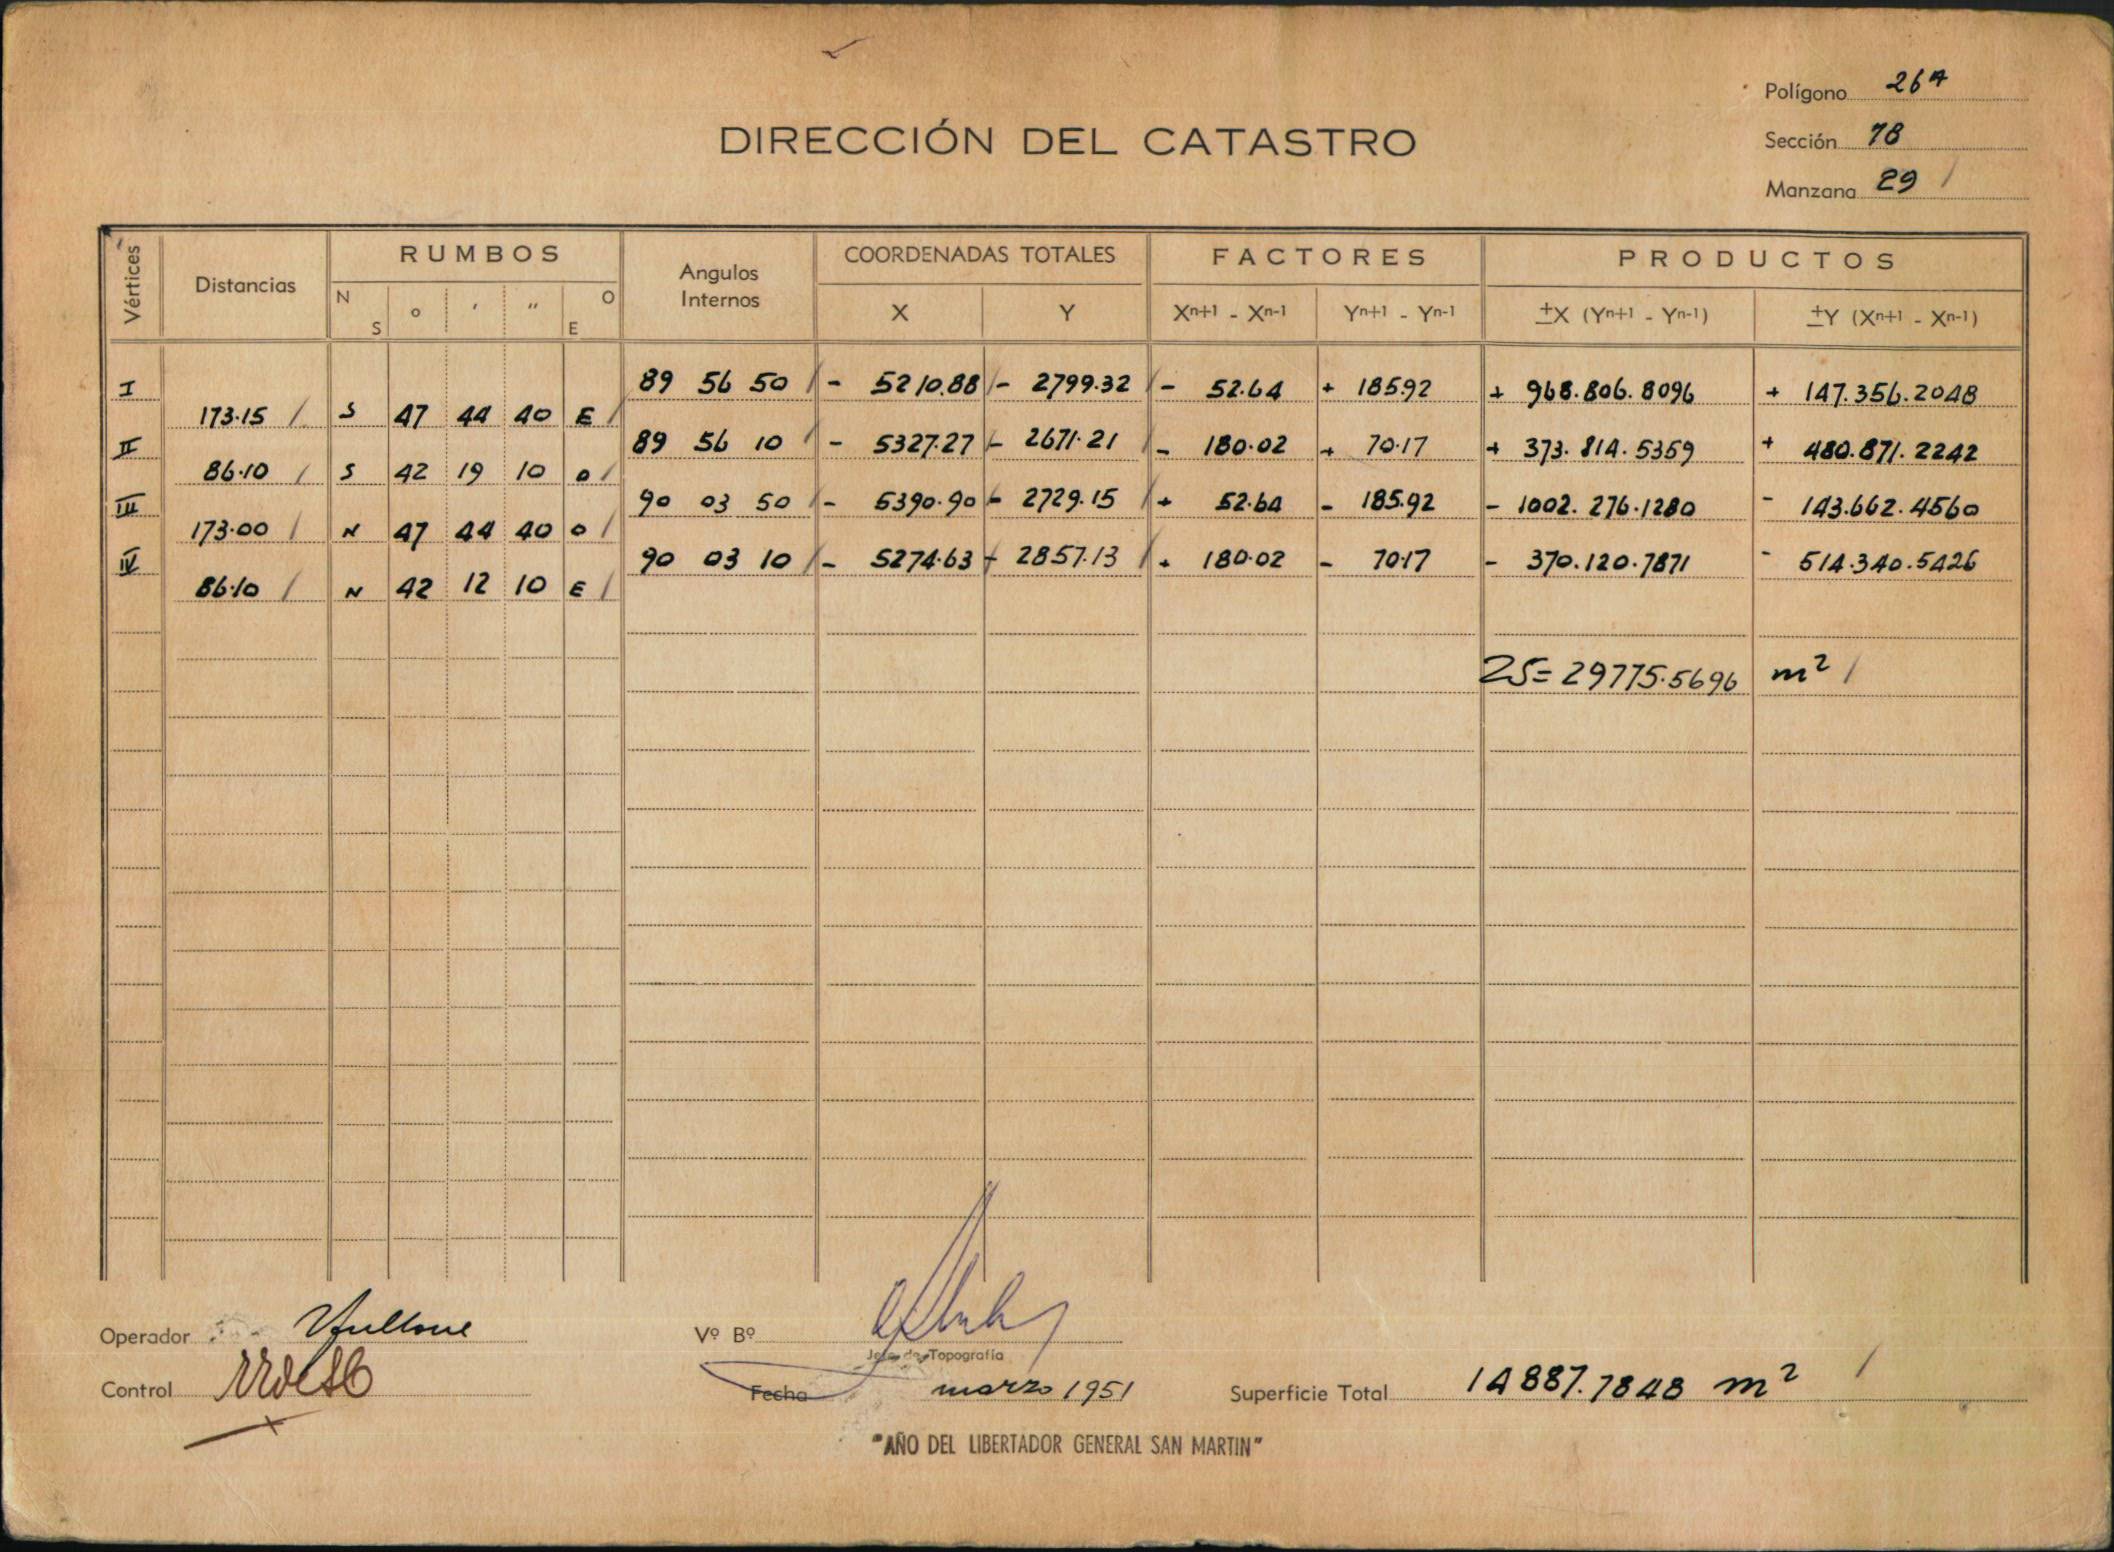 Polígono 26A
DIRECCIÓN DEL CATASTRO
Sección 78
Manzana 29 /
Vértices Distancias RUMBOS Angulos Internos COORDENADAS TOTALES FACTORES PRODUCTOS
N S o ' " O E X Y Xn+1 - Xn-1 Yn+1 - Yn-1 ±X (Yn+1 - Yn-1) ±Y (Xn+1 - Xn-1)
I 89 56 50 / - 5210.88 / - 2799.32 / - 52.64 + 185.92 + 968.806.8096 + 147.356.2048
173.15 / S 47 44 40 E /
II 89 56 10 / - 5327.27 / - 2671.21 / - 180.02 + 70.17 + 373.814.5359 + 480.871.2242
86.10 / S 42 19 10 O /
III 90 03 50 / - 5390.90 / - 2729.15 / + 52.64 - 185.92 - 1002.276.1280 - 143.662.4560
173.00 / N 47 44 40 O /
IV 90 03 10 / - 5274.63 / - 2857.13 / + 180.02 - 70.17 - 370.120.7871 - 514.340.5426
86.10 / N 42 12 10 E /
2S= 29775.5696 m² /
Operador
Vº Bº
Jefe de Topografía
Control
Fecha marzo 1951
Superficie Total 14887.7848 m² /
"AÑO DEL LIBERTADOR GENERAL SAN MARTIN"